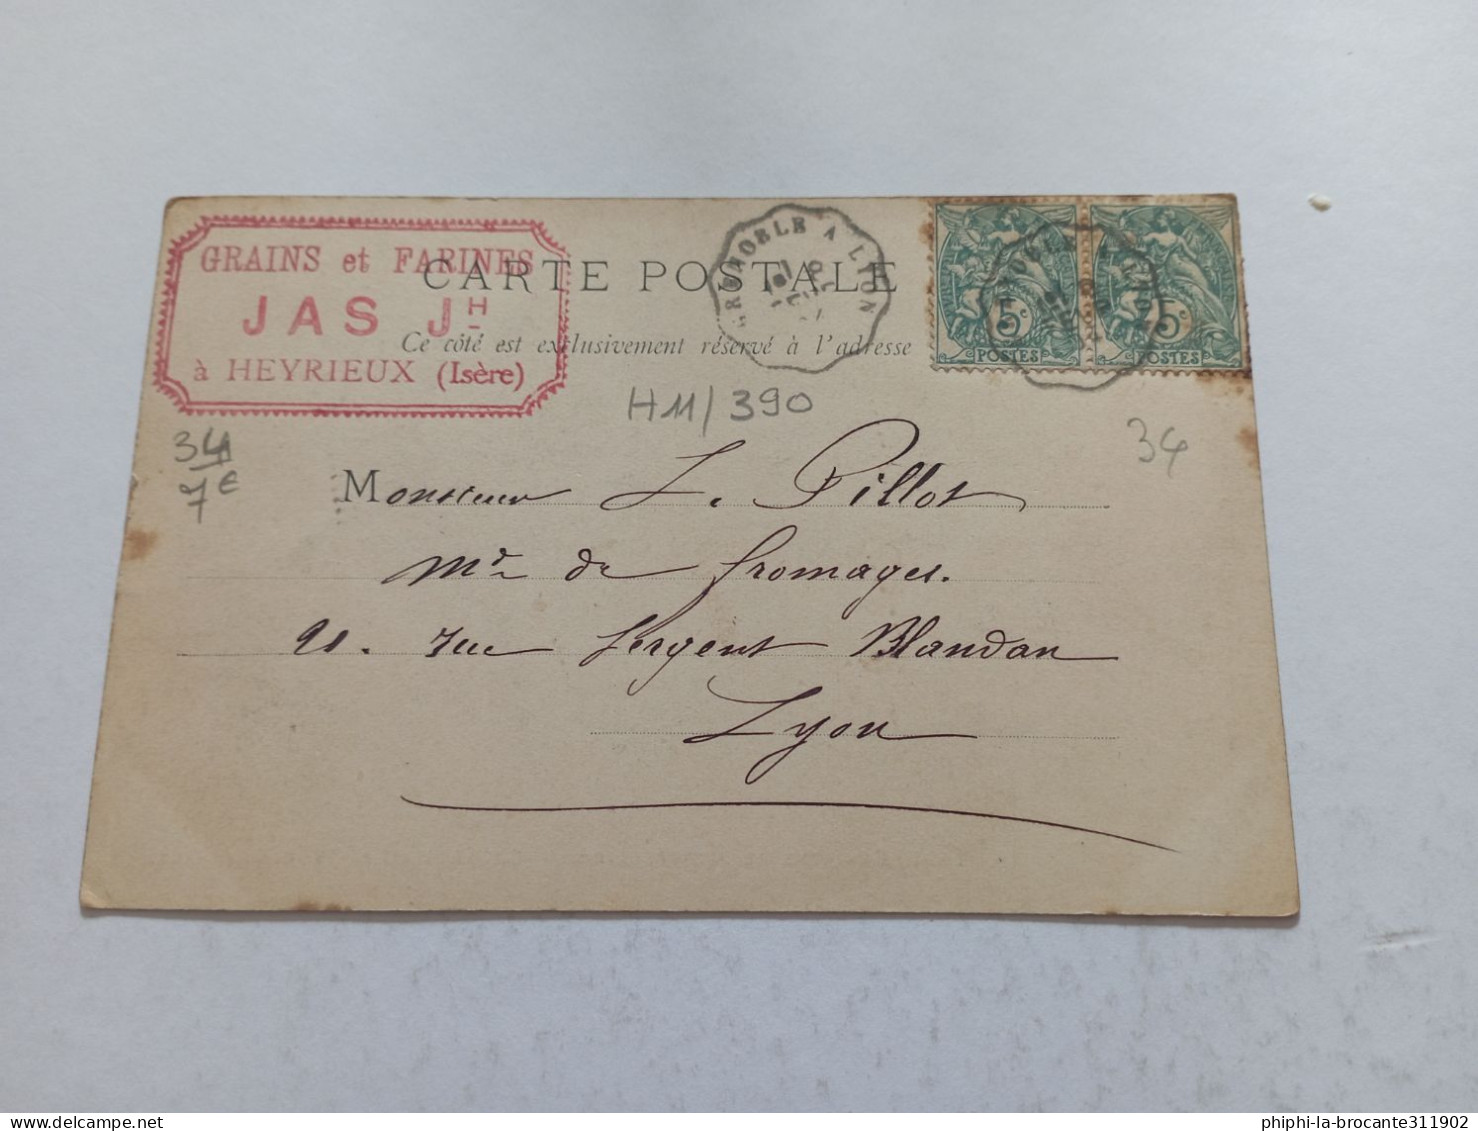 GRAINS et FARINES
JAS JH
à HEYRIEUX (Isère)
CARTE POSTALE
Ce côté est exclusivement réservé à l'adresse
GRENOBLE A LYON
5c 5c
POSTES POSTES
H11/390
34
7€
34
Monsieur L. Pillot
Md de fromages.
rue Sergent Blandan
Lyon
phiphi-la-brocante311902